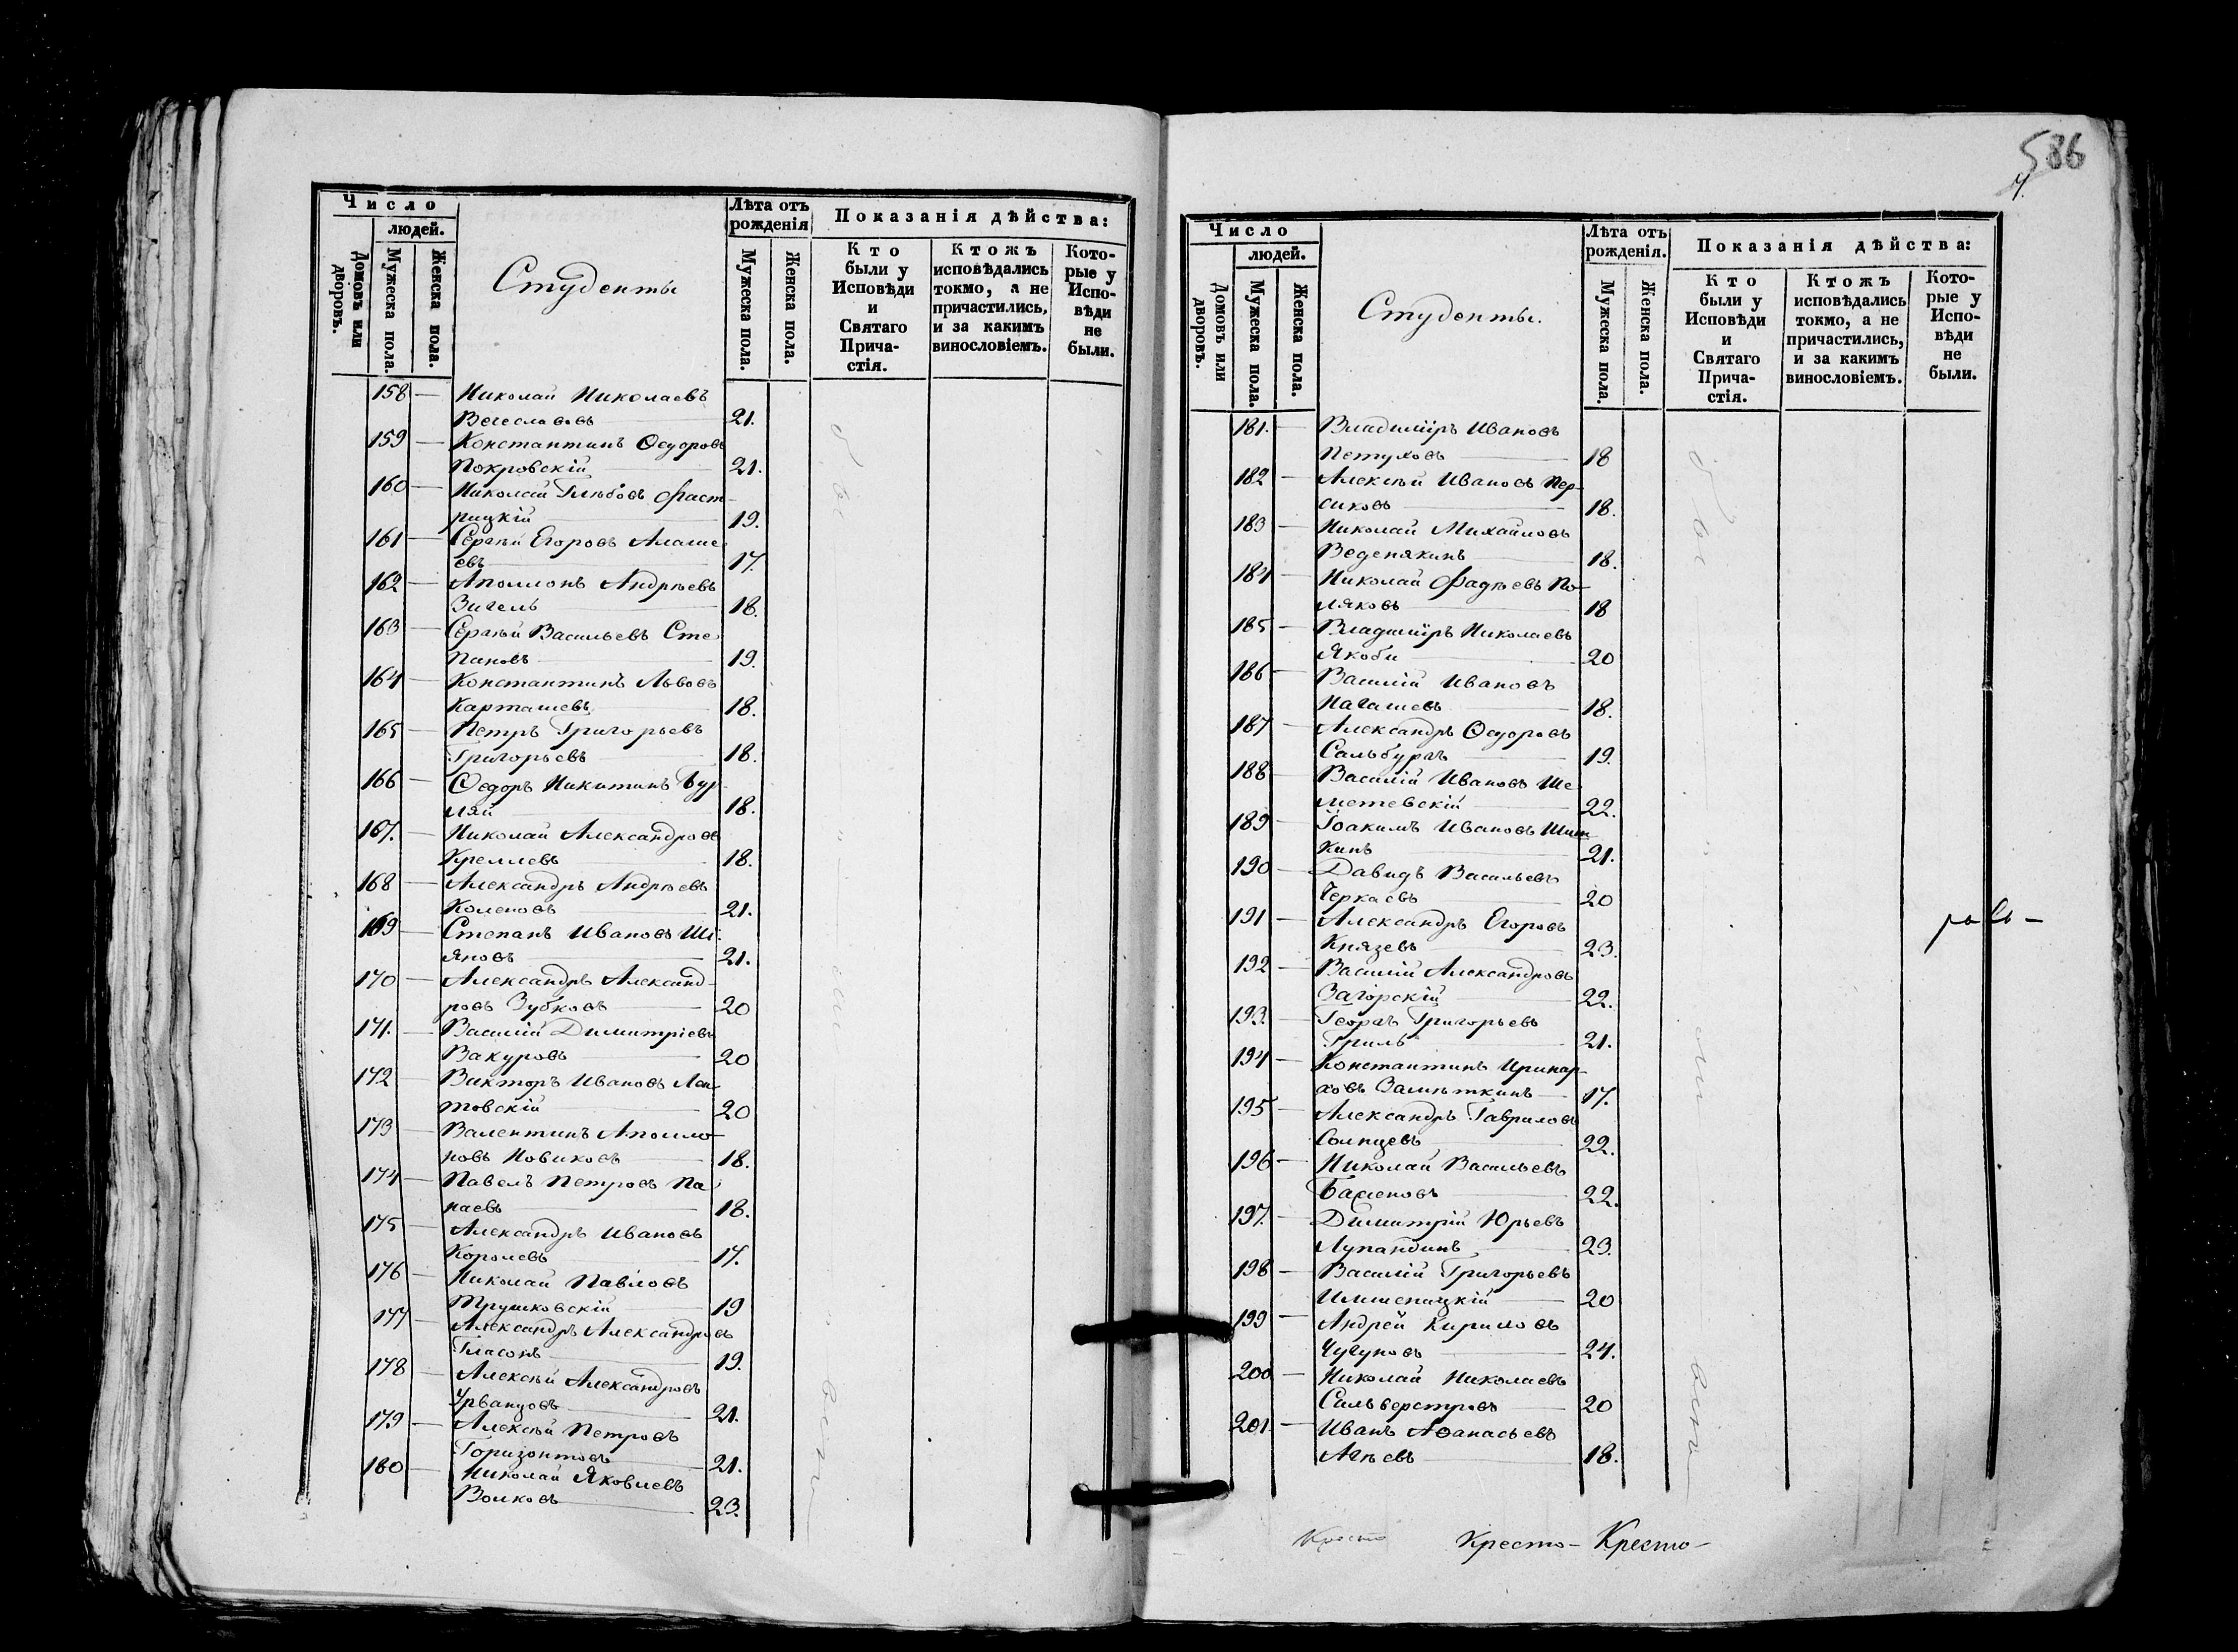 Число
людей.
Домовъ или дворовъ.
Мужеска пола.
Женска пола.
Студенты
Лѣта отъ рожденія
Мужеска пола.
Женска пола.
Показанія дѣйства:
Кто были у Исповѣди и Святаго Прича-стія.
Ктожъ исповѣдались токмо, а не причастились, и за какимъ винословіемъ.
Кото-рые у Испо-вѣди не были.
158 — Николай Николаевъ
21.
159 — Константинъ Ѳедоровъ
Покровскій 21.
160 — Николай Глѣбовъ Фаст-
рицкій 19.
161 — Сергѣй Егоровъ Алаше
евъ 17.
162 — Аполлонъ Андрѣевъ
Зигель 18.
163 — Сергѣй Васильевъ Сте
пановъ 19.
164 — Константинъ Львовъ
Карташевъ 18.
165 — Петръ Григорьевъ
Григорьевъ 18.
166 — Ѳедоръ Никитинъ Бур
ляй 18.
167. — Николай Александровъ
Кремлевъ 18.
168 — Александръ Андрѣевъ
Коленовъ 21.
169 — Степанъ Ивановъ Ши
яновъ 21.
170 — Александръ Александ-
ровъ Зубковъ 20
171. — Василій Димитріевъ
Вакуровъ 20
172 — Викторъ Ивановъ
товскій 20
173 — Валентинъ Аполло-
новъ Новиковъ 18.
174 — Павелъ Петровъ Па
наевъ 18.
175 — Александръ Ивановъ
Королевъ 17.
176 — Николай Павловъ
Трушковскій 19
177 — Александръ Александровъ
Гласонъ 19.
178 — Алексѣй Александровъ
Урванцовъ 21.
179 — Алексѣй Петровъ
Горизонтовъ 21.
180 — Николай Яковлевъ
Волковъ 23.
586
Число
людей.
Домовъ или дворовъ.
Мужеска пола.
Женска пола.
Студенты.
Лѣта отъ рожденія.
Мужеска пола.
Женска пола.
Показанія дѣйства:
Кто были у Исповѣди и Святаго Прича-стія.
Ктожъ исповѣдались токмо, а не причастились, и за какимъ винословіемъ.
Кото-рые у Испо-вѣди не были.
181. — Владиміръ Ивановъ
Петуховъ 18
182 — Алексѣй Ивановъ Пер-
сиковъ 18.
183 — Николай Михайловъ
Веденякинъ 18.
184 — Николай Фадѣевъ По-
ляковъ 18
185 — Владиміръ Николаевъ
Якоби 20
186 — Василій Ивановъ
Нагашевъ 18.
187 — Александръ Ѳедоровъ
Сальбургъ 19.
188 — Василій Ивановъ Ше
метевскій 22.
189 — Іоакимъ Ивановъ Шиш
кинъ 21.
190 — Давидъ Васильевъ
Черкаевъ 20
191 — Александръ Егоровъ
Князевъ 23.
192 — Василій Александровъ
Загорскій 22.
193. — Георгъ Григорьевъ
Гриль 21.
194 — Константинъ Иринар-
ховъ Замѣткинъ 17.
195 — Александръ Гавриловъ
Солнцевъ 22.
196 — Николай Васильевъ
Баженовъ 22.
197. — Димитрій Юрьевъ
Лупандинъ 23.
198 — Василій Григорьевъ
20
199 — Андрей Кириловъ
Чугуновъ 24.
200 — Николай Николаевъ
Сальверстровъ 20
201 — Иванъ Аѳанасьевъ
Агѣевъ 18.
Кресто
Кресто-
Кресто-